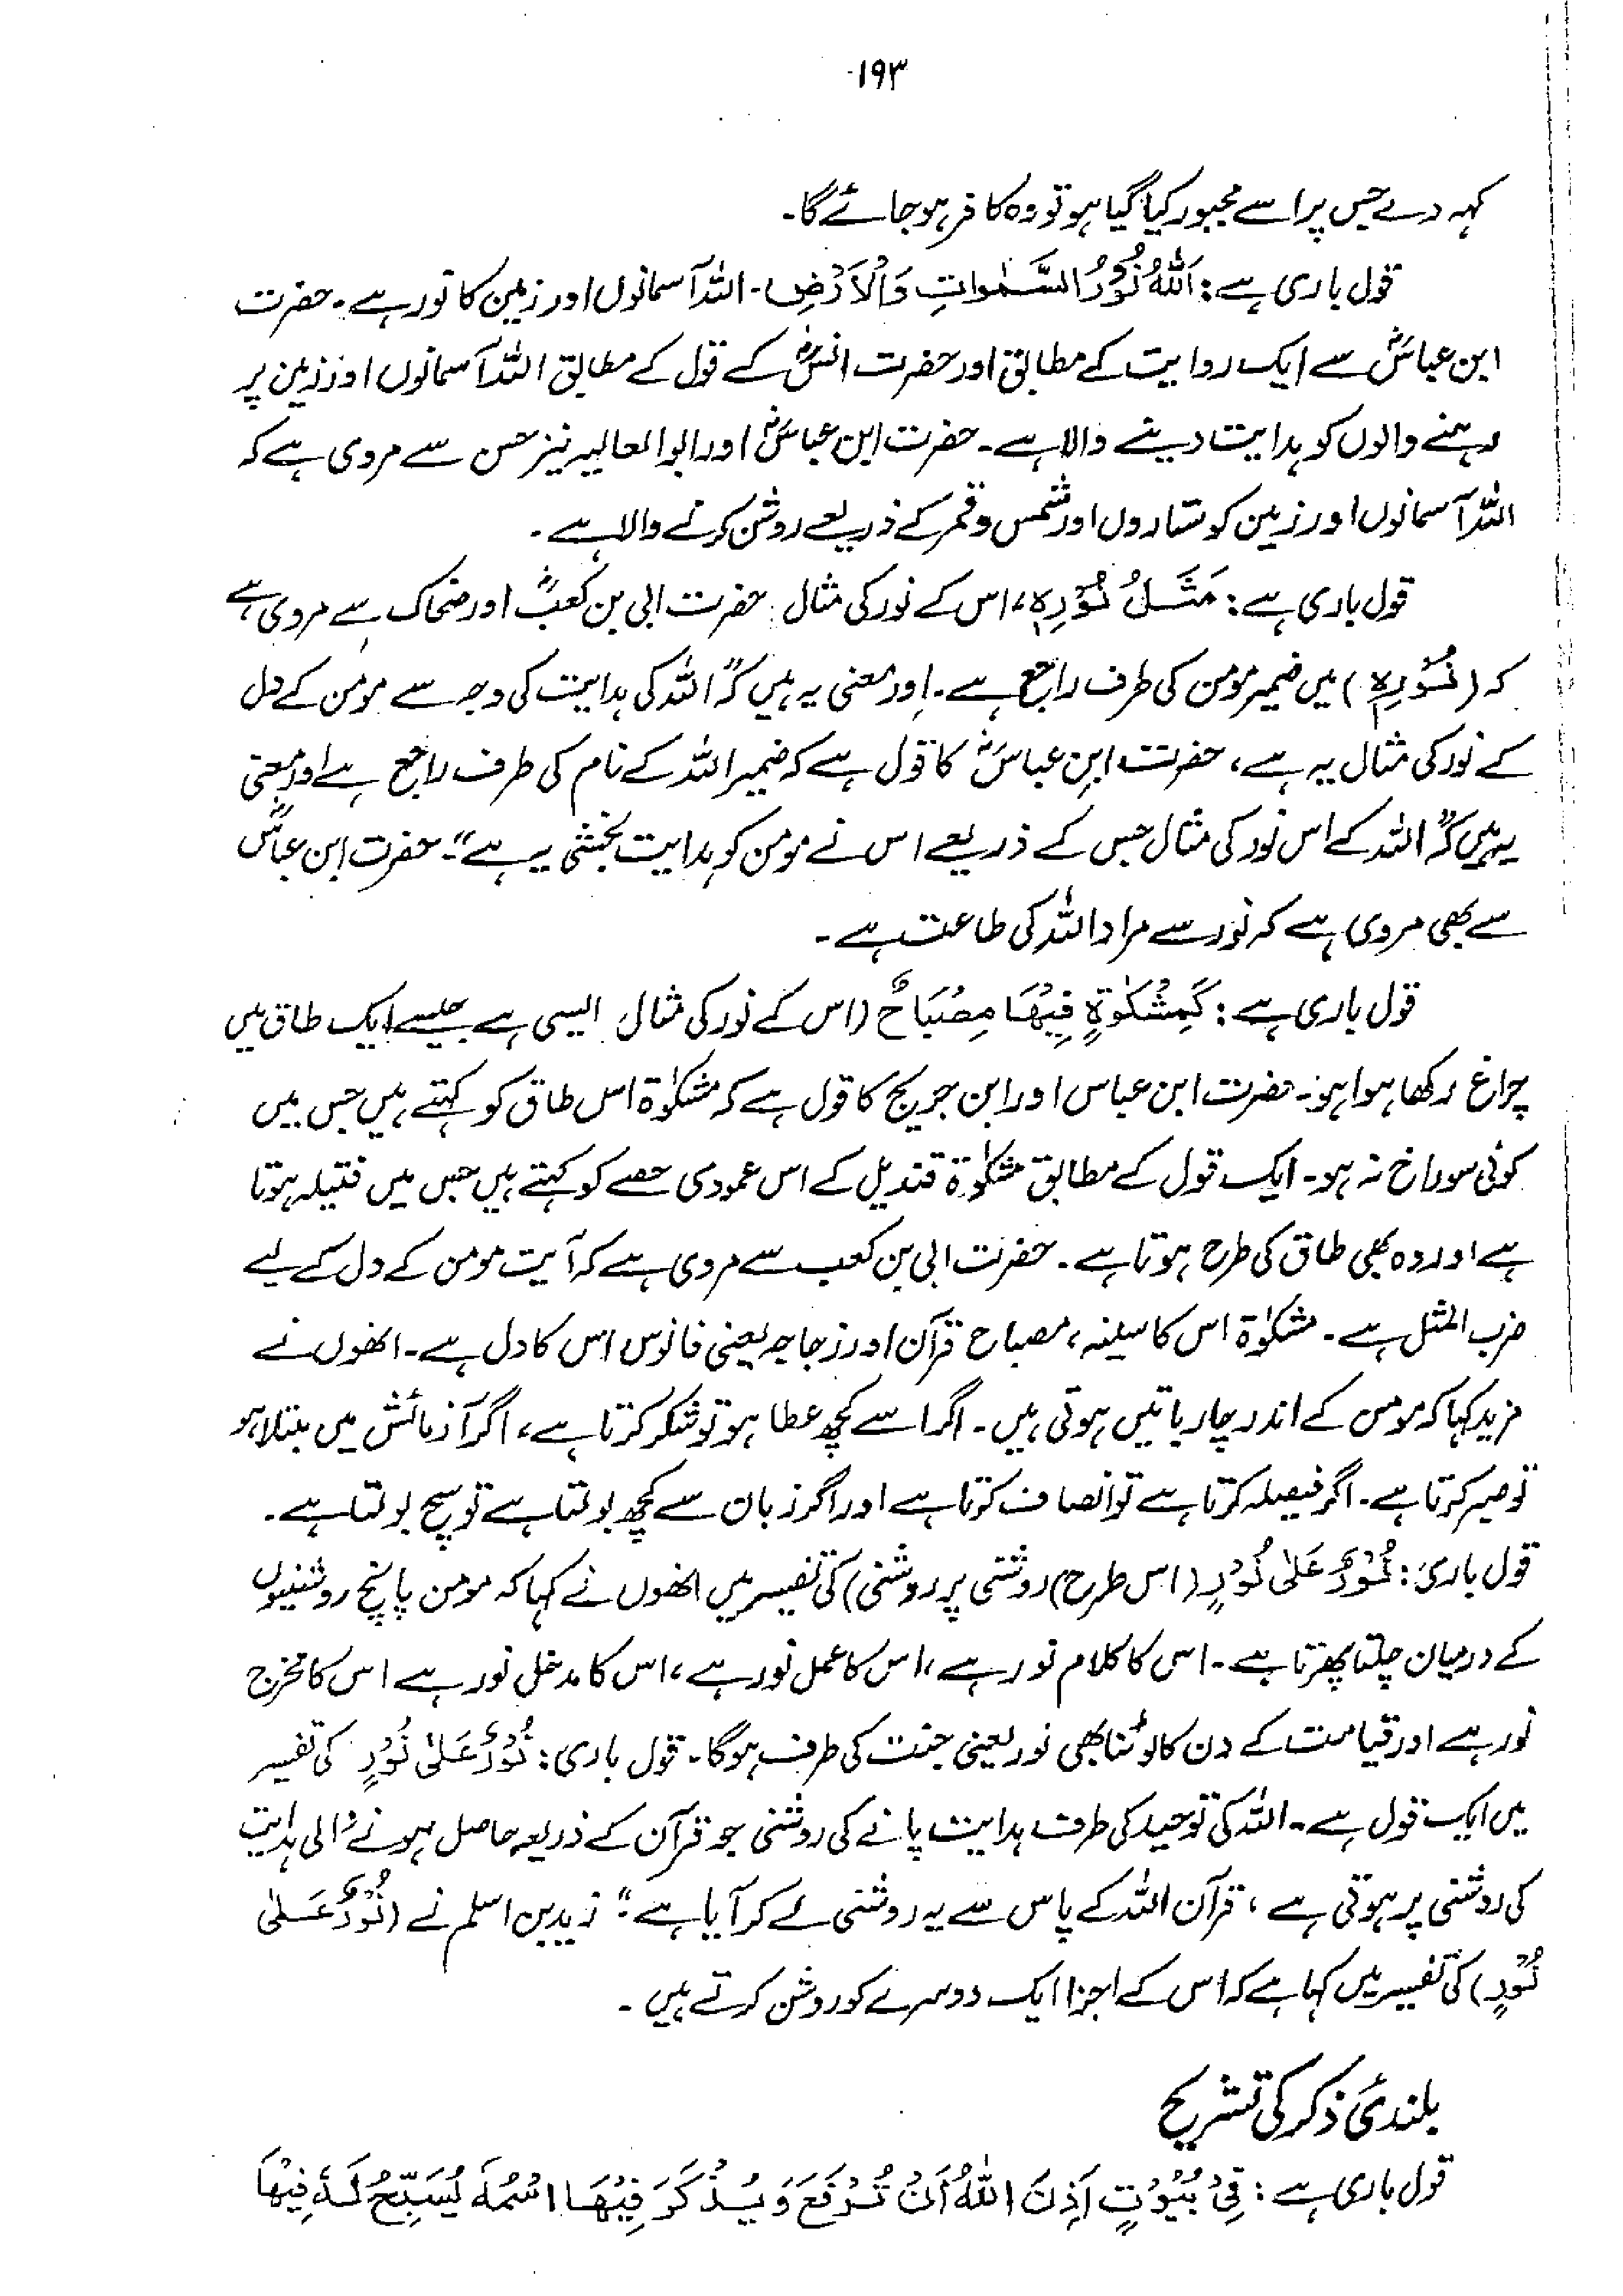 ۱۹۳
کہہ دے جس پر اسے مجبور کیا گیا ہو تو وہ کافر ہو جائے گا۔
قول باری ہے: اَللّٰهُ نُوْرُ السَّمٰوَاتِ وَالْاَرْضِ۔ اللہ آسمانوں اور زمین کا نور ہے۔ حضرت
ابن عباسؓ سے ایک روایت کے مطابق اور حضرت انسؓ کے قول کے مطابق اللہ آسمانوں اور زمین پر
رہنے والوں کو ہدایت دینے والا ہے۔ حضرت ابن عباسؓ اور ابوالعالیہ نیز حسن سے مروی ہے کہ
اللہ آسمانوں اور زمین کو ستاروں اور شمس و قمر کے ذریعے روشن کرنے والا ہے۔
قول باری ہے: مَثَلُ نُوْرِهٖ، اس کے نور کی مثال۔ حضرت ابی بن کعبؓ اور ضحاک سے مروی ہے
کہ (نُوْرِهٖ) میں ضمیر مومن کی طرف راجع ہے۔ اور معنی یہ ہیں کہ "اللہ کی ہدایت کی وجہ سے مومن کے دل
کے نور کی مثال یہ ہے، حضرت ابن عباسؓ کا قول ہے کہ ضمیر اللہ کے نام کی طرف راجع ہے اور معنی
یہ ہیں کہ "اللہ کے اس نور کی مثال جس کے ذریعے اس نے مومن کو ہدایت بخشی یہ ہے"۔ حضرت ابن عباسؓ
سے بھی مروی ہے کہ نور سے مراد اللہ کی طاعت ہے۔
قول باری ہے: كَمِشْكٰوةٍ فِيْهَا مِصْبَاحٌ (اس کے نور کی مثال ایسی ہے جیسے ایک طاق میں
چراغ رکھا ہوا ہو۔ حضرت ابن عباس اور ابن جریج کا قول ہے کہ مشکوٰۃ اس طاق کو کہتے ہیں جس میں
کوئی سوراخ نہ ہو۔ ایک قول کے مطابق مشکوٰۃ قندیل کے اس عمودی حصے کو کہتے ہیں جس میں فتیلہ ہوتا
ہے اور وہ بھی طاق کی طرح ہوتا ہے۔ حضرت ابی بن کعب سے مروی ہے کہ آیت مومن کے دل کے لیے
ضرب المثل ہے۔ مشکوٰۃ اس کا سینہ، مصباح قرآن اور زجاجہ یعنی فانوس اس کا دل ہے۔ انھوں نے
مزید کہا کہ مومن کے اندر چار باتیں ہوتی ہیں۔ اگر اسے کچھ عطا ہو تو شکر کرتا ہے، اگر آزمائش میں مبتلا ہو
تو صبر کرتا ہے۔ اگر فیصلہ کرتا ہے تو انصاف کرتا ہے اور اگر زبان سے کچھ بولتا ہے تو سچ بولتا ہے۔
قول باری: نُوْرٌ عَلٰى نُوْرٍ (اس طرح) روشنی پر روشنی) کی تفسیر میں انھوں نے کہا کہ مومن پانچ روشنیوں
کے درمیان چلتا پھرتا ہے۔ اس کا کلام نور ہے، اس کا عمل نور ہے، اس کا مدخل نور ہے اس کا مخرج
نور ہے اور قیامت کے دن کا لوٹنا بھی نور یعنی جنت کی طرف ہو گا۔ قول باری: نُوْرٌ عَلٰى نُوْرٍ کی تفسیر
میں ایک قول ہے۔ اللہ کی توحید کی طرف ہدایت پانے کی روشنی جو قرآن کے ذریعہ حاصل ہونے والی ہدایت
کی روشنی پر ہوتی ہے، قرآن اللہ کے پاس سے یہ روشنی لے کر آیا ہے"۔ زید بن اسلم نے (نُوْرٌ عَلٰى
نُوْرٍ) کی تفسیر میں کہا ہے کہ اس کے اجزا ایک دوسرے کو روشن کرتے ہیں۔
بلندیٔ ذکر کی تشریح
قول باری ہے: فِيْ بُيُوْتٍ اَذِنَ اللّٰهُ اَنْ تُرْفَعَ وَيُذْكَرَ فِيْهَا اسْمُهٗ يُسَبِّحُ لَهٗ فِيْهَا